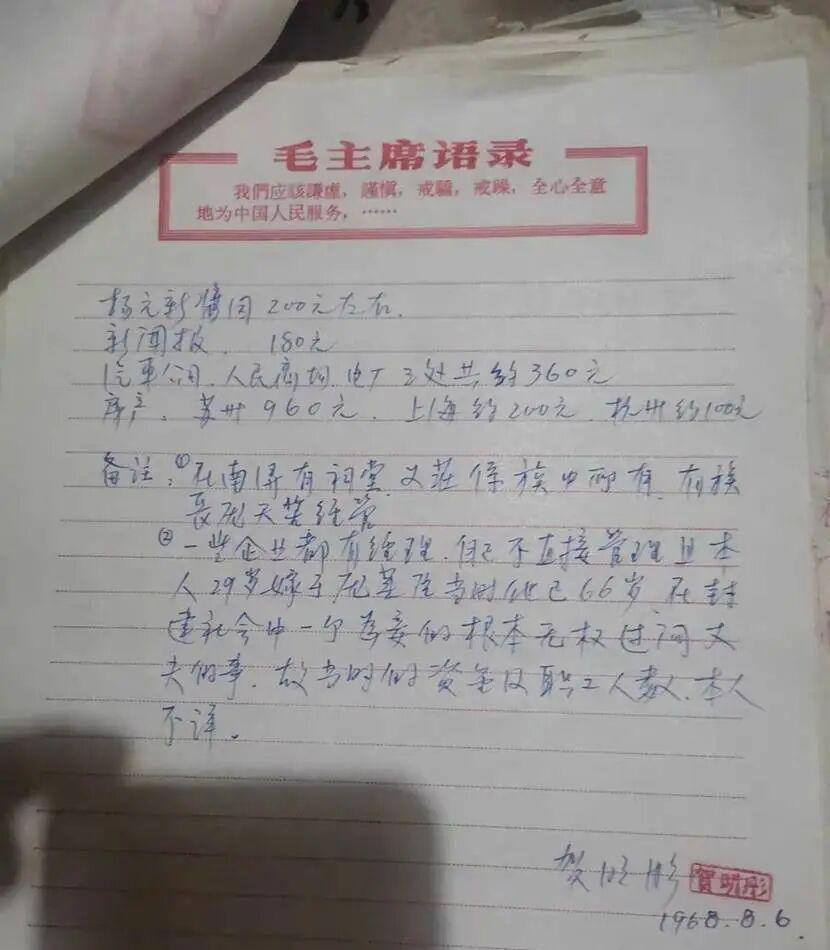 毛主席语录
我們应該謙虛，謹慎，戒驕，戒躁，全心全意
地为中国人民服务，……
杨元新酱园 200元左右.
新闻报. 180元
汽車公司.人民商场.电厂三处共约360元
房产. 苏州960元. 上海约200元. 杭州约100元
备注：①在南浔有祠堂.义莊係族中所有.有族
長庞天笙经管
②一些企业都有经理.自己不直接管理且本
人29岁嫁于庞莱臣当时他已66岁.在封
建社会中一个为妾的根本无权过问丈
夫的事.故当时的资金及職工人数.本人
不详.
贺明彤 賀明彤
1968.8.6.